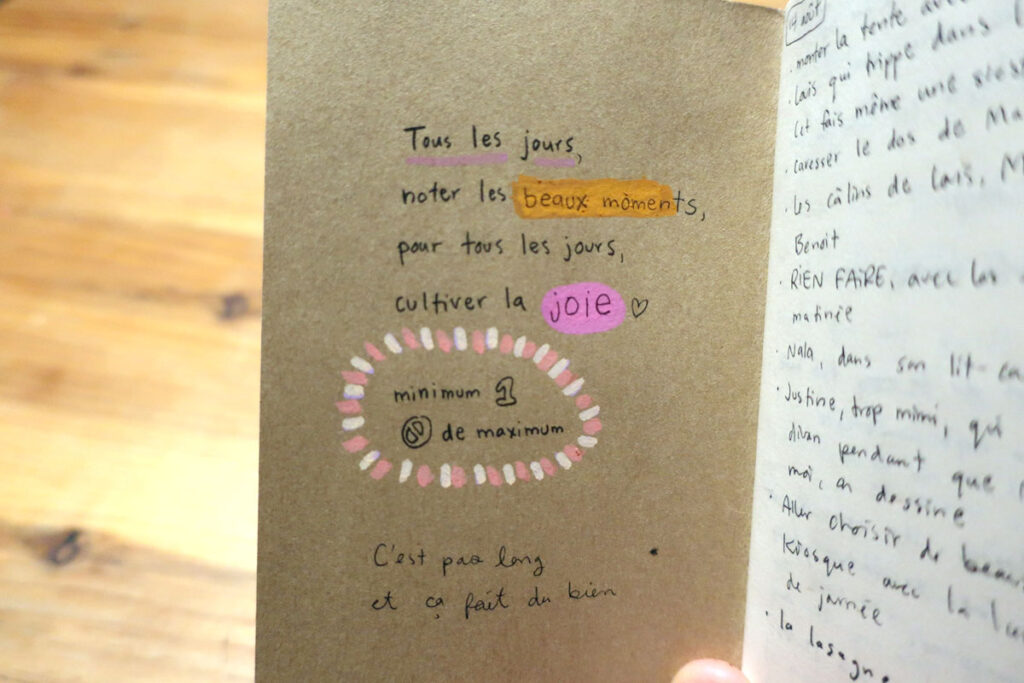 Tous les jours,
noter les beaux moments,
pour tous les jours,
cultiver la joie ♡
minimum 1
de maximum
C'est pas long
et ça fait du bien
août
monter la tente
qui trippe dans
fais même une
caresser le dos de
les câlins de
Benoit
RIEN FAIRE, avec
matinée
Nala, dans son lit
Justine, trop mimi, qui
divan pendant que
moi, on dessine
Aller choisir de
Kiosque avec la
de journée
la lasagne